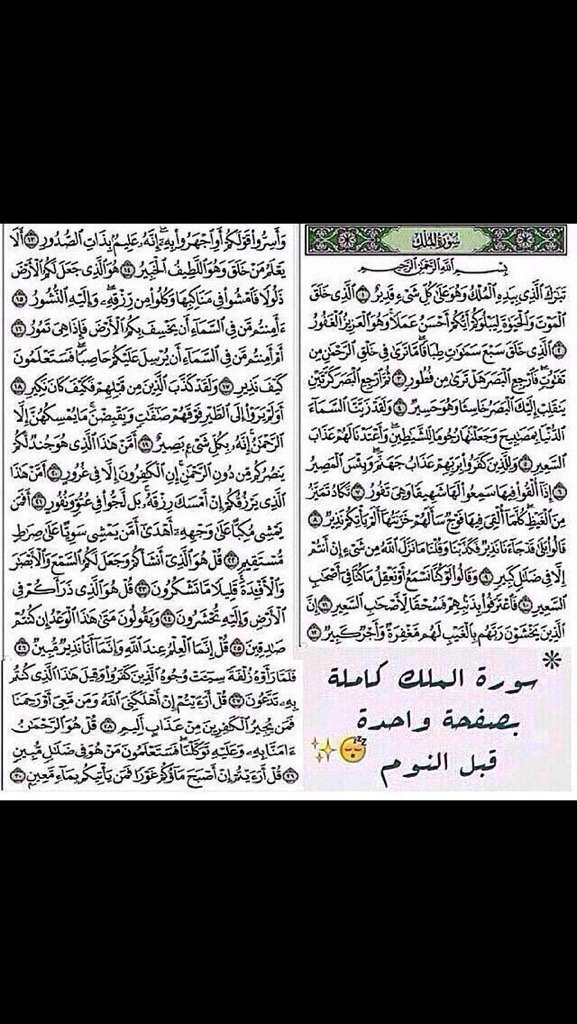 سُورَةُ المُلْكِ
بِسْمِ اللَّهِ الرَّحْمَٰنِ الرَّحِيمِ
تَبَٰرَكَ ٱلَّذِى بِيَدِهِ ٱلْمُلْكُ وَهُوَ عَلَىٰ كُلِّ شَىْءٍ قَدِيرٌ ١ ٱلَّذِى خَلَقَ
ٱلْمَوْتَ وَٱلْحَيَوٰةَ لِيَبْلُوَكُمْ أَيُّكُمْ أَحْسَنُ عَمَلًا وَهُوَ ٱلْعَزِيزُ ٱلْغَفُورُ
٢ ٱلَّذِى خَلَقَ سَبْعَ سَمَٰوَٰتٍ طِبَاقًا مَّا تَرَىٰ فِى خَلْقِ ٱلرَّحْمَٰنِ مِن
تَفَٰوُتٍ فَٱرْجِعِ ٱلْبَصَرَ هَلْ تَرَىٰ مِن فُطُورٍ ٣ ثُمَّ ٱرْجِعِ ٱلْبَصَرَ كَرَّتَيْنِ
يَنقَلِبْ إِلَيْكَ ٱلْبَصَرُ خَاسِئًا وَهُوَ حَسِيرٌ ٤ وَلَقَدْ زَيَّنَّا ٱلسَّمَآءَ
ٱلدُّنْيَا بِمَصَٰبِيحَ وَجَعَلْنَٰهَا رُجُومًا لِّلشَّيَٰطِينِ وَأَعْتَدْنَا لَهُمْ عَذَابَ
ٱلسَّعِيرِ ٥ وَلِلَّذِينَ كَفَرُوا۟ بِرَبِّهِمْ عَذَابُ جَهَنَّمَ وَبِئْسَ ٱلْمَصِيرُ
٦ إِذَآ أُلْقُوا۟ فِيهَا سَمِعُوا۟ لَهَا شَهِيقًا وَهِىَ تَفُورُ ٧ تَكَادُ تَمَيَّزُ
مِنَ ٱلْغَيْظِ كُلَّمَآ أُلْقِىَ فِيهَا فَوْجٌ سَأَلَهُمْ خَزَنَتُهَآ أَلَمْ يَأْتِكُمْ نَذِيرٌ ٨
قَالُوا۟ بَلَىٰ قَدْ جَآءَنَا نَذِيرٌ فَكَذَّبْنَا وَقُلْنَا مَا نَزَّلَ ٱللَّهُ مِن شَىْءٍ إِنْ أَنتُمْ
إِلَّا فِى ضَلَٰلٍ كَبِيرٍ ٩ وَقَالُوا۟ لَوْ كُنَّا نَسْمَعُ أَوْ نَعْقِلُ مَا كُنَّا فِىٓ أَصْحَٰبِ
ٱلسَّعِيرِ ١٠ فَٱعْتَرَفُوا۟ بِذَنۢبِهِمْ فَسُحْقًا لِّأَصْحَٰبِ ٱلسَّعِيرِ ١١ إِنَّ
ٱلَّذِينَ يَخْشَوْنَ رَبَّهُم بِٱلْغَيْبِ لَهُم مَّغْفِرَةٌ وَأَجْرٌ كَبِيرٌ ١٢
وَأَسِرُّوا۟ قَوْلَكُمْ أَوِ ٱجْهَرُوا۟ بِهِۦٓ إِنَّهُۥ عَلِيمٌۢ بِذَاتِ ٱلصُّدُورِ ١٣ أَلَا
يَعْلَمُ مَنْ خَلَقَ وَهُوَ ٱللَّطِيفُ ٱلْخَبِيرُ ١٤ هُوَ ٱلَّذِى جَعَلَ لَكُمُ ٱلْأَرْضَ
ذَلُولًا فَٱمْشُوا۟ فِى مَنَاكِبِهَا وَكُلُوا۟ مِن رِّزْقِهِۦ وَإِلَيْهِ ٱلنُّشُورُ ١٥
ءَأَمِنتُم مَّن فِى ٱلسَّمَآءِ أَن يَخْسِفَ بِكُمُ ٱلْأَرْضَ فَإِذَا هِىَ تَمُورُ ١٦
أَمْ أَمِنتُم مَّن فِى ٱلسَّمَآءِ أَن يُرْسِلَ عَلَيْكُمْ حَاصِبًا فَسَتَعْلَمُونَ
كَيْفَ نَذِيرِ ١٧ وَلَقَدْ كَذَّبَ ٱلَّذِينَ مِن قَبْلِهِمْ فَكَيْفَ كَانَ نَكِيرِ ١٨
أَوَلَمْ يَرَوْا۟ إِلَى ٱلطَّيْرِ فَوْقَهُمْ صَٰٓفَّٰتٍ وَيَقْبِضْنَ مَا يُمْسِكُهُنَّ إِلَّا
ٱلرَّحْمَٰنُ إِنَّهُۥ بِكُلِّ شَىْءٍۭ بَصِيرٌ ١٩ أَمَّنْ هَٰذَا ٱلَّذِى هُوَ جُندٌ لَّكُمْ
يَنصُرُكُم مِّن دُونِ ٱلرَّحْمَٰنِ إِنِ ٱلْكَٰفِرُونَ إِلَّا فِى غُرُورٍ ٢٠ أَمَّنْ هَٰذَا
ٱلَّذِى يَرْزُقُكُمْ إِنْ أَمْسَكَ رِزْقَهُۥ بَل لَّجُّوا۟ فِى عُتُوٍّ وَنُفُورٍ ٢١ أَفَمَن
يَمْشِى مُكِبًّا عَلَىٰ وَجْهِهِۦٓ أَهْدَىٰٓ أَمَّن يَمْشِى سَوِيًّا عَلَىٰ صِرَٰطٍ
مُّسْتَقِيمٍ ٢٢ قُلْ هُوَ ٱلَّذِىٓ أَنشَأَكُمْ وَجَعَلَ لَكُمُ ٱلسَّمْعَ وَٱلْأَبْصَٰرَ
وَٱلْأَفْـِٔدَةَ قَلِيلًا مَّا تَشْكُرُونَ ٢٣ قُلْ هُوَ ٱلَّذِى ذَرَأَكُمْ فِى
ٱلْأَرْضِ وَإِلَيْهِ تُحْشَرُونَ ٢٤ وَيَقُولُونَ مَتَىٰ هَٰذَا ٱلْوَعْدُ إِن كُنتُمْ
صَٰدِقِينَ ٢٥ قُلْ إِنَّمَا ٱلْعِلْمُ عِندَ ٱللَّهِ وَإِنَّمَآ أَنَا۠ نَذِيرٌ مُّبِينٌ ٢٦
فَلَمَّا رَأَوْهُ زُلْفَةً سِيٓـَٔتْ وُجُوهُ ٱلَّذِينَ كَفَرُوا۟ وَقِيلَ هَٰذَا ٱلَّذِى كُنتُم
بِهِۦ تَدَّعُونَ ٢٧ قُلْ أَرَءَيْتُمْ إِنْ أَهْلَكَنِىَ ٱللَّهُ وَمَن مَّعِىَ أَوْ رَحِمَنَا
فَمَن يُجِيرُ ٱلْكَٰفِرِينَ مِنْ عَذَابٍ أَلِيمٍ ٢٨ قُلْ هُوَ ٱلرَّحْمَٰنُ
ءَامَنَّا بِهِۦ وَعَلَيْهِ تَوَكَّلْنَا فَسَتَعْلَمُونَ مَنْ هُوَ فِى ضَلَٰلٍ مُّبِينٍ
٢٩ قُلْ أَرَءَيْتُمْ إِنْ أَصْبَحَ مَآؤُكُمْ غَوْرًا فَمَن يَأْتِيكُم بِمَآءٍ مَّعِينٍۭ ٣٠
سورة الملك كاملة
بصفحة واحدة
قبل النوم